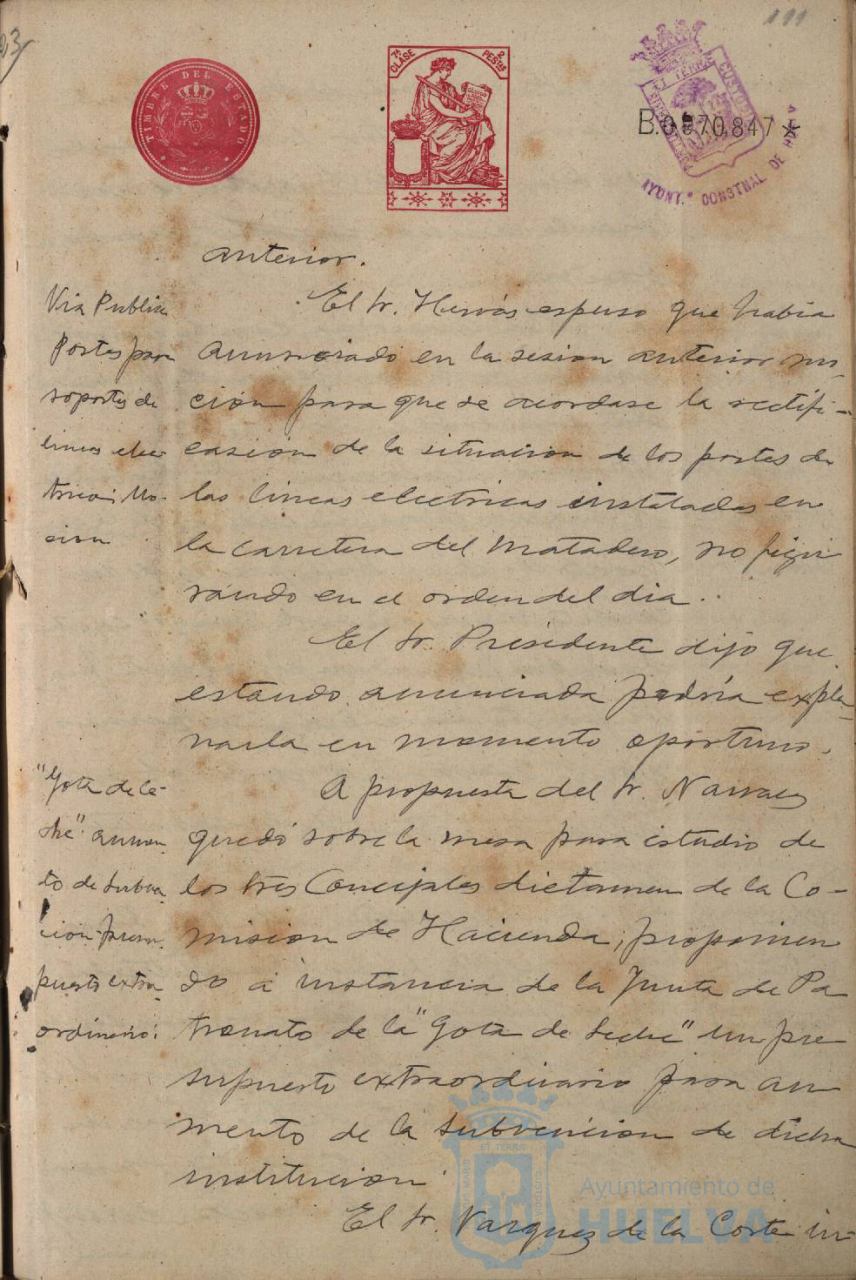 23/
111
TIMBRE DEL ESTADO
7ª CLASE
2 PESTAS
B.0.570.847
AYUNT.º CONSTNAL DE
anterior.
Via Publica
Postes para
soportes de
lineas elec
tricas: Mo-
cion
El Sr. Hervás espuso que habia
anunciado en la sesion anterior mo-
cion para que se acordase la rectifi-
casion de la situacion de los postes de
las lineas electricas instaladas en
la carretera del Matadero, no figu
rando en el orden del dia.
El Sr. Presidente dijo que
estando anunciada podria expla-
narla en momento oportuno.
"Gota de Le-
che" aumen
to de subven
cion presu
puesto extra
ordinario:
A propuesta del Sr. Narvaez
quedó sobre la mesa para estudio de
los tres Conciples dictamen de la Co-
mision de Hacienda, proponien
do a instancia de la Junta de Pa
tronato de la "Gota de Leche" un pre
supuesto extraordinario para au
mento de la subvencion de dicha
institucion.
El Sr. Vazquez de la Corte in-
Ayuntamiento de
HUELVA